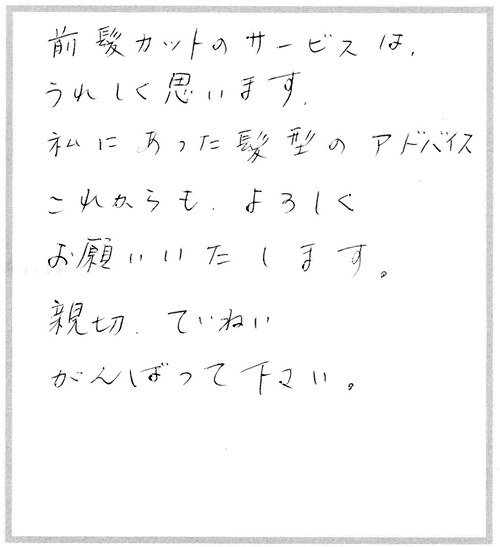 前髪カットのサービスは、
うれしく思います。
私にあった髪型のアドバイス
これからも、よろしく
お願いいたします。
親切、ていねい
がんばって下さい。